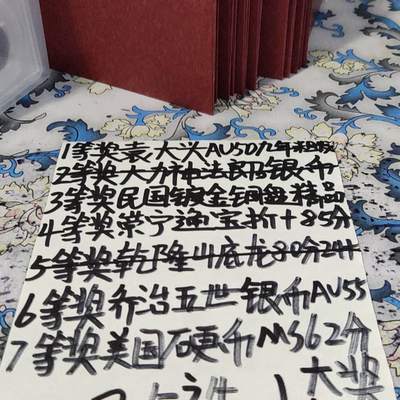 1等奖袁大头AU50九年
2等奖大力神法郎银币
3等奖民国镀金铜盘精品
4等奖崇宁通宝折十85分
5等奖乾隆山底龙80分
6等奖乔治五世银币AU55
7等奖美国硬币MS62分
大奖